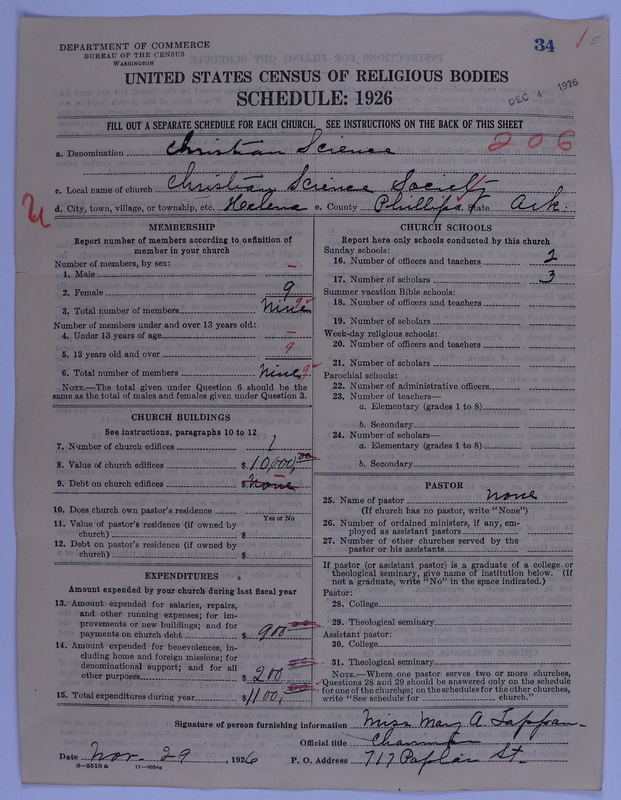 DEPARTMENT OF COMMERCE
BUREAU OF THE CENSUS
WASHINGTON
34
UNITED STATES CENSUS OF RELIGIOUS BODIES
SCHEDULE: 1926
DEC 4 1926
FILL OUT A SEPARATE SCHEDULE FOR EACH CHURCH. SEE INSTRUCTIONS ON THE BACK OF THIS SHEET
a. Denomination Christian Science 206
c. Local name of church Christian Science Society
d. City, town, village, or township, etc. Helena e. County Phillips f. State Ark.
MEMBERSHIP
Report number of members according to definition of
member in your church
Number of members, by sex:
1. Male –
2. Female 9
3. Total number of members Nine 9
Number of members under and over 13 years old:
4. Under 13 years of age –
5. 13 years old and over 9
6. Total number of members Nine 9
NOTE.—The total given under Question 6 should be the
same as the total of males and females given under Question 3.
CHURCH BUILDINGS
See instructions, paragraphs 10 to 12
7. Number of church edifices 1
8. Value of church edifices $10,000,00
9. Debt on church edifices $none
10. Does church own pastor's residence
Yes or No
11. Value of pastor's residence (if owned by
church) $
12. Debt on pastor's residence (if owned by
church) $
EXPENDITURES
Amount expended by your church during last fiscal year
13. Amount expended for salaries, repairs,
and other running expenses; for im-
provements or new buildings; and for
payments on church debt $900.00
14. Amount expended for benevolences, in-
cluding home and foreign missions; for
denominational support; and for all
other purposes $200.00
15. Total expenditures during year $1100.00
CHURCH SCHOOLS
Report here only schools conducted by this church
Sunday schools:
16. Number of officers and teachers 2
17. Number of scholars 3
Summer vacation Bible schools:
18. Number of officers and teachers
19. Number of scholars
Week-day religious schools:
20. Number of officers and teachers
21. Number of scholars
Parochial schools:
22. Number of administrative officers
23. Number of teachers—
a. Elementary (grades 1 to 8)
b. Secondary
24. Number of scholars—
a. Elementary (grades 1 to 8)
b. Secondary
PASTOR
25. Name of pastor none
(If church has no pastor, write "None")
26. Number of ordained ministers, if any, em-
ployed as assistant pastors
27. Number of other churches served by the
pastor or his assistants
If pastor (or assistant pastor) is a graduate of a college or
theological seminary, give name of institution below. (If
not a graduate, write "No" in the space indicated.)
Pastor:
28. College
29. Theological seminary
Assistant pastor:
30. College
31. Theological seminary
NOTE.—Where one pastor serves two or more churches,
Questions 28 and 29 should be answered only on the schedule
for one of the churches; on the schedules for the other churches,
write "See schedule for church."
Signature of person furnishing information Miss Mary A. Tappan
Official title Chairman
Date Nov. 29, 1926 P. O. Address 717 Poplar St.
8—5518a 11—9054a